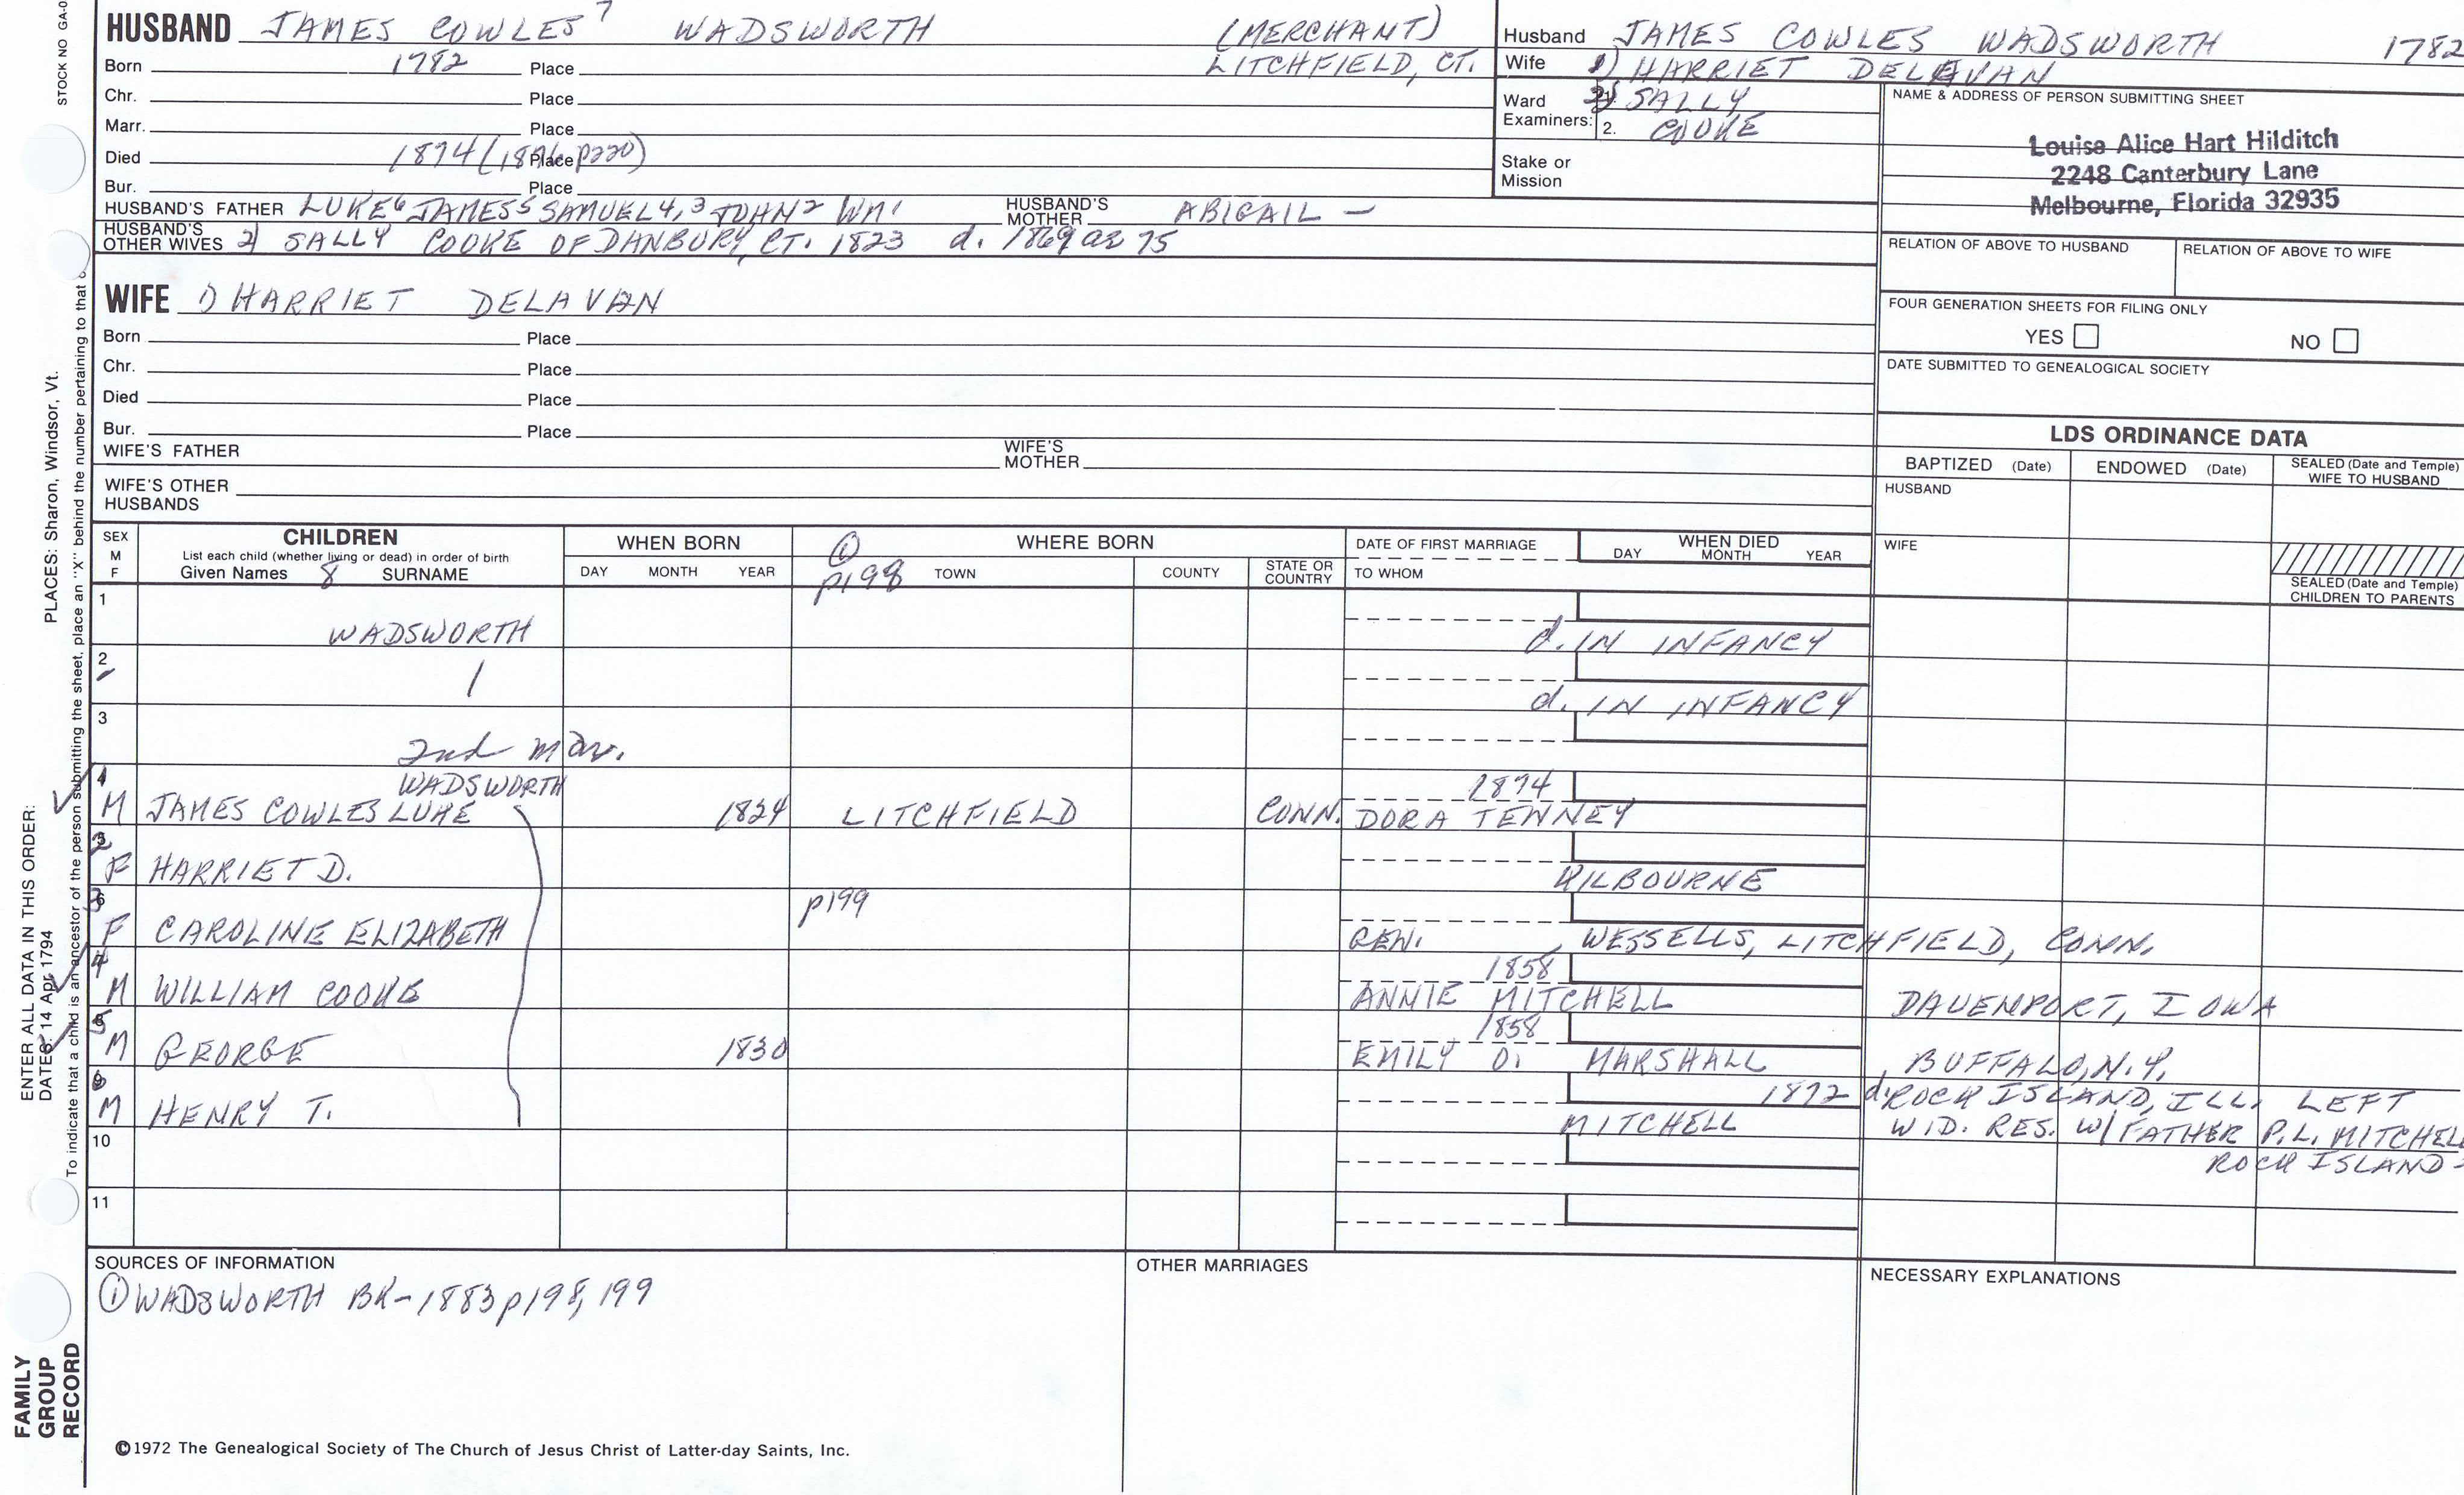 STOCK NO GA-0
HUSBAND JAMES COWLES 7 WADSWORTH (MERCHANT)
Born 1782 Place LITCHFIELD, CT.
Chr. Place
Marr. Place
Died 1874 (1876 p220) Place
Bur. Place
HUSBAND'S FATHER LUKE6 JAMES5 SAMUEL4,3 JOHN2 WM1 HUSBAND'S MOTHER ABIGAIL —
HUSBAND'S OTHER WIVES 2) SALLY COOKE OF DANBURY, CT. 1823 d. 1869 ae 75
Husband JAMES COWLES WADSWORTH 1782
Wife 1) HARRIET DELAVAN
Ward Examiners: 1. 2) SALLY
2. COOKE
Stake or Mission
NAME & ADDRESS OF PERSON SUBMITTING SHEET
Louise Alice Hart Hilditch
2248 Canterbury Lane
Melbourne, Florida 32935
RELATION OF ABOVE TO HUSBAND RELATION OF ABOVE TO WIFE
FOUR GENERATION SHEETS FOR FILING ONLY
YES NO
DATE SUBMITTED TO GENEALOGICAL SOCIETY
WIFE 1) HARRIET DELAVAN
Born Place
Chr. Place
Died Place
Bur. Place
WIFE'S FATHER WIFE'S MOTHER
WIFE'S OTHER HUSBANDS
LDS ORDINANCE DATA
BAPTIZED (Date) ENDOWED (Date) SEALED (Date and Temple) WIFE TO HUSBAND
HUSBAND
WIFE
SEALED (Date and Temple) CHILDREN TO PARENTS
SEX M F
CHILDREN
List each child (whether living or dead) in order of birth
Given Names 8 SURNAME
WHEN BORN
DAY MONTH YEAR
① p198
WHERE BORN
TOWN COUNTY STATE OR COUNTRY
DATE OF FIRST MARRIAGE
TO WHOM
WHEN DIED
DAY MONTH YEAR
1 WADSWORTH d. IN INFANCY
2 d. IN INFANCY
3 2nd mar.
WADSWORTH 1874
M JAMES COWLES LUKE 1824 LITCHFIELD CONN. DORA TENNEY
2
F HARRIET D. KILBOURNE
3 p199
F CAROLINE ELIZABETH GEN. , WESSELLS, LITCHFIELD, CONN.
4 1858
M WILLIAM COOKE ANNIE MITCHELL DAVENPORT, IOWA
5 1858
M GEORGE 1830 EMILY O. MARSHALL , BUFFALO, N.Y.
1872 d. ROCK ISLAND, ILL. LEFT
M HENRY T. MITCHELL WID. RES. W/ FATHER P.L. MITCHELL
10 ROCK ISLAND
11
SOURCES OF INFORMATION
① WADSWORTH BK-1883 p198, 199
OTHER MARRIAGES
NECESSARY EXPLANATIONS
©1972 The Genealogical Society of The Church of Jesus Christ of Latter-day Saints, Inc.
ENTER ALL DATA IN THIS ORDER:
DATES: 14 Apr 1794 PLACES: Sharon, Windsor, Vt.
To indicate that a child is an ancestor of the person submitting the sheet, place an "X" behind the number pertaining to that
FAMILY
GROUP
RECORD